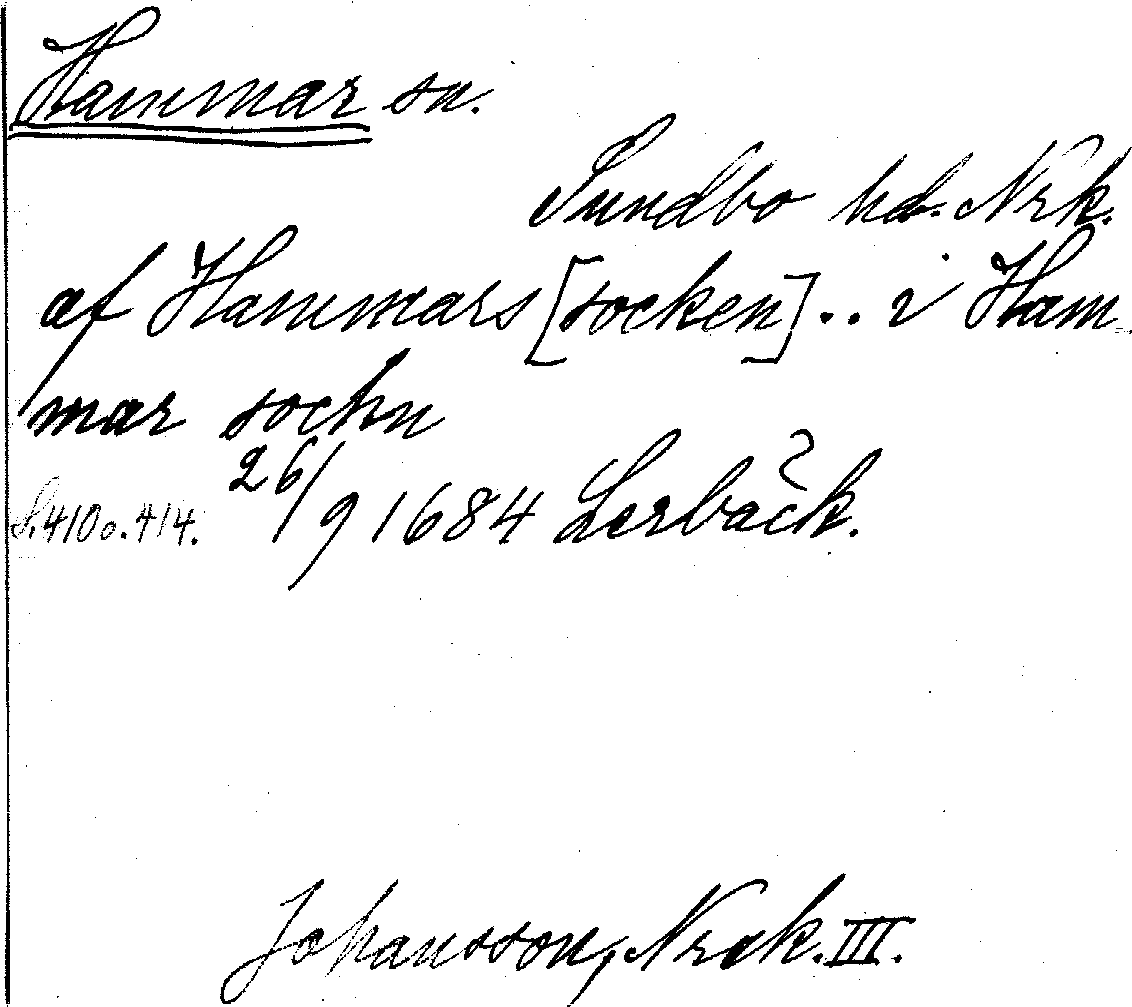 Hammar sn.
Sundbo hd. Nrk.
af Hammars [socken] .. i Ham-
mar sochn
S. 410 o. 414. 26/9 1684 Lerbäck.
Johansson, Nrdk. III.